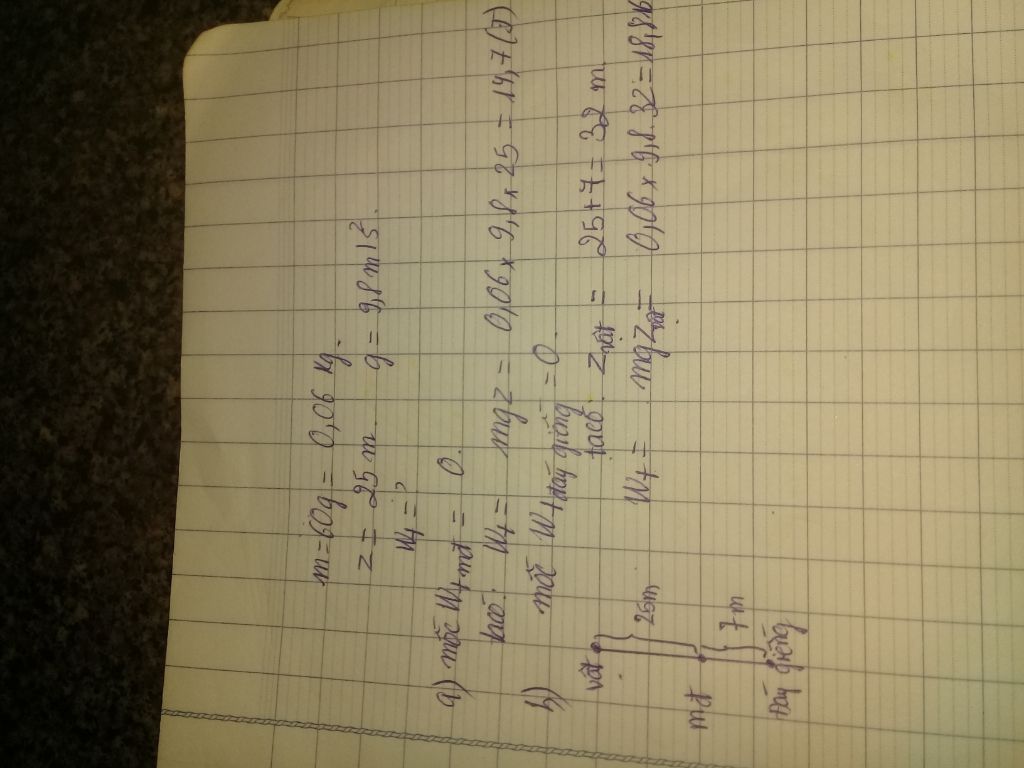 m = 60g = 0,06 kg.
z = 25 m. g = 9,8 m/s².
Wt = ?
a) mốc Wt mđ = 0.
taco: Wt = mgz = 0,06 x 9,8 x 25 = 14,7 (J)
b) mốc Wt đáy giếng = 0.
taco: z vật = 25 + 7 = 32 m.
Wt = mgz vật = 0,06 x 9,8 . 32 = 18,816
vật
25m
mđ
7m
đáy giếng